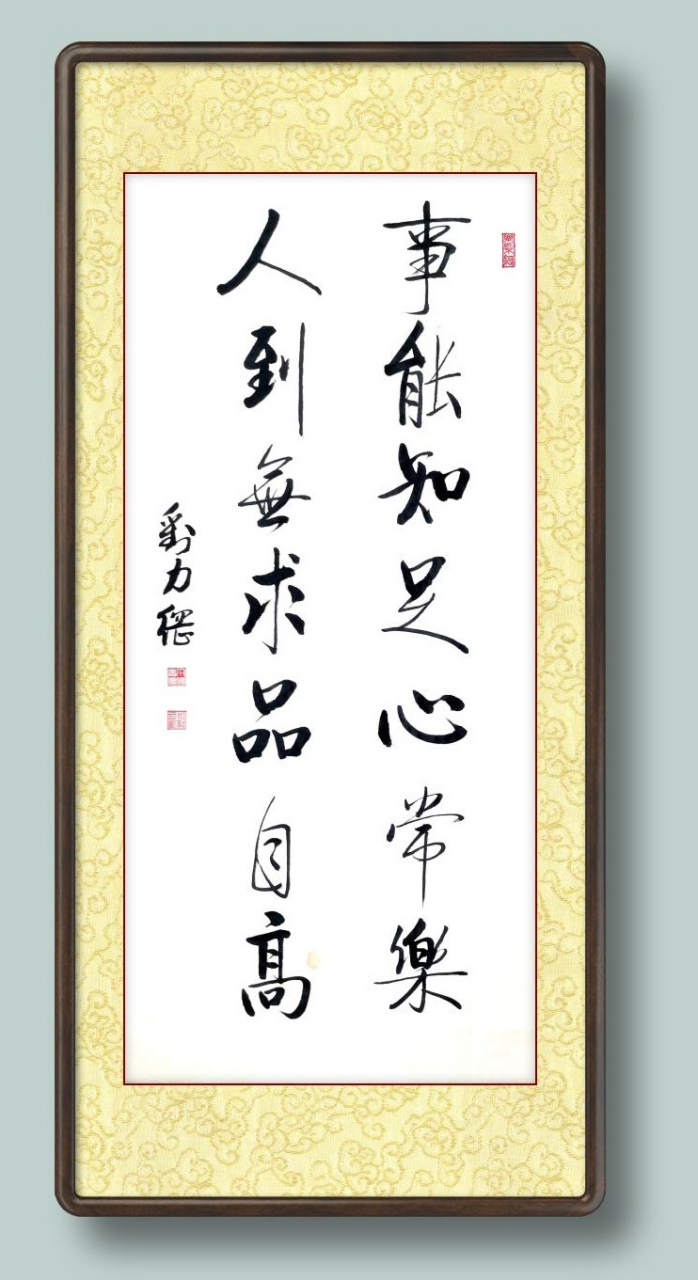 事能知足心常樂
人到無求品自高
劉力